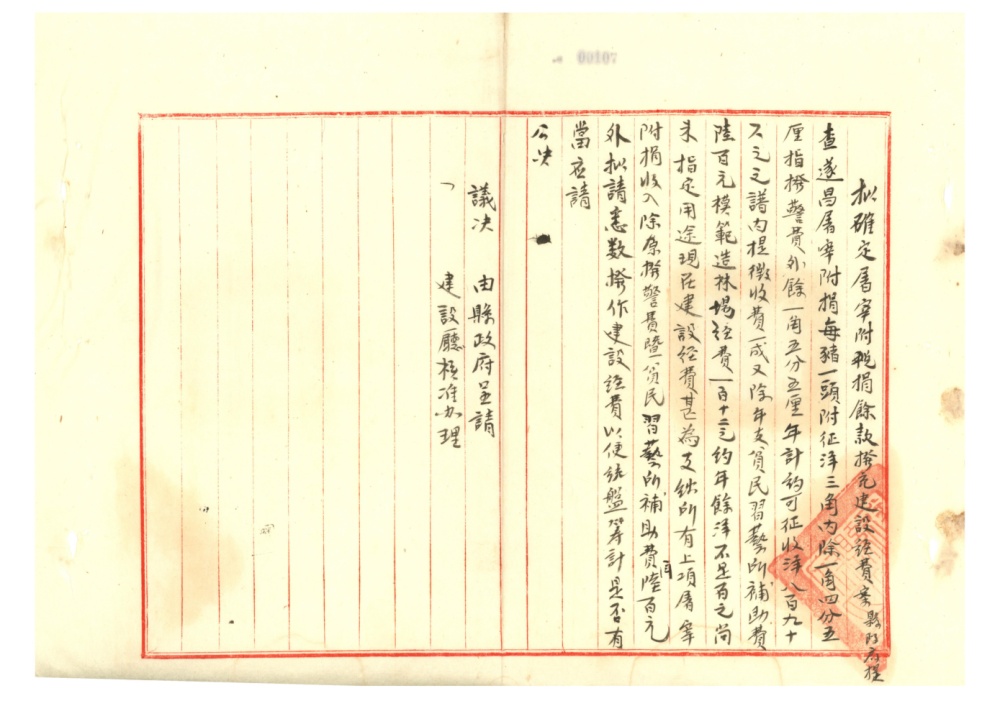 00107
拟確定屠宰附税捐餘款撥充建設經費案 縣政府提
查遂昌屠宰附捐每豬一頭附征洋三角内除一角四分五
厘指撥警費外餘一角五分五厘年計約可征收洋八百九十
元之譜内提徵收費一成又除年支貧民習藝所補助費
陸百元模範造林場經費一百十二元約年餘洋不足百元尚
未指定用途現在建設經費甚為支絀所有上項屠宰
附捐收入除原撥警費暨貧民習藝所補助費陸百元
外拟請悉数撥作建設經費以便統盤籌計是否有
當應請
公决
議决 由縣政府呈請
建設廳核准办理